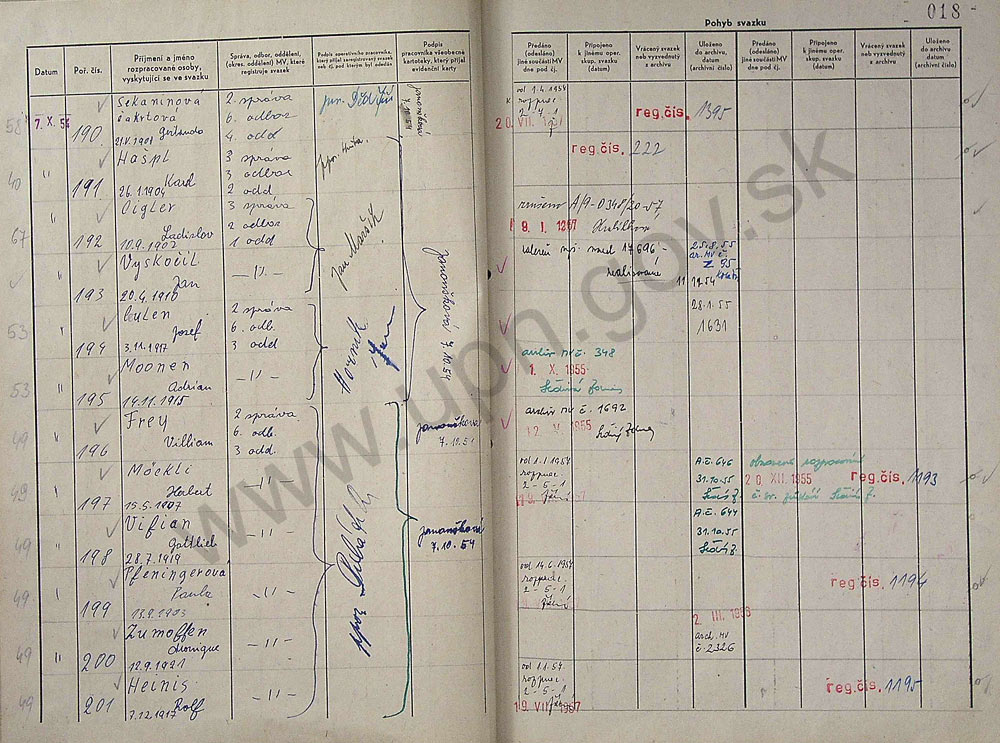 018
Pohyb svazku
Datum
Poř. čís.
Příjmení a jméno
rozpracované osoby,
vyskytující se ve svazku
Správa, odbor, oddělení,
(okres. oddělení) MV, které
registruje svazek
Podpis operativního pracovníka,
který přijal zaregistrovaný svazek
neb čj. pod kterým byl odeslán
Podpis
pracovníka všeobecné
kartoteky, který přijal
evidenční karty
Předáno
(odesláno)
jiné součásti MV
dne pod čj.
Připojeno
k jinému oper.
skup. svazku
(datum)
Vrácený svazek
neb vyzvednutý
z archivu
Uloženo
do archivu
datum
(archivní číslo)
Předáno
(odesláno)
jiné součásti MV
dne pod čj.
Připojeno
k jinému oper.
skup. svazku
(datum)
Vrácený svazek
neb vyzvednutý
z archivu
Uloženo
do archivu
datum
(archivní číslo)
58
7. X. 54
190
Sekaninová
Čakrtová
Gertruda
2 správa
6. odbor
4. odd
7.10.54
od 1.4.1954
rozprac
2-4-1
20. VII.
reg.čís. 1395
40
"
191
Hašpl
Karel
26.1.1904
3 správa
3 odbor
2 odd
reg.čís. 222
67
"
192
Cigler
Ladislav
10.9.1902
3 správa
2 odbor
1 odd
zrušeno A/9-0348/20-57
8. I. 1957
"
193
Vyskočil
Jan
20.4.1910
— " —
Jan
17696 -
realisováno
25.8.55
ar. MV č.
Z 95
53
"
194
Josef
3.11.1917
2 správa
6. odb.
3 odd
Janoušková 7.10.54
28.1.55
1631
53
"
195
Moonen
Adrian
14.11.1915
— " —
archiv MV č. 348
1. X. 1955
49
"
196
Frey
William
2 správa
6. odb.
3 odd.
Janoušková
7.10.54
archiv MV č. 1692
2. V. 1955
49
"
197
Möckli
Herbert
15.5.1907
— " —
od 1.1.1954
rozprac
2-5-1
A.č. 646
31.10.55
obnoveno rozpracování
20. XII. 1955
reg.čís. 1193
49
"
198
Vifian
Gottlieb
28.7.1919
— " —
Janoušková
7.10.54
A.č. 644
31.10.55
49
"
199
Pfeningerová
Paula
13.9.1903
— " —
od 14.6.1954
rozprac
2-5-1
reg.čís. 1194
49
"
200
Zumoffen
Dominique
12.9.1921
— " —
2. III. 1956
arch. MV
č. 2326
49
201
Heinis
Rolf
7.12.1917
— " —
od 1.1.54
rozprac
2-5-1
19. VII. 1957
reg.čís. 1195
www.upn.gov.sk